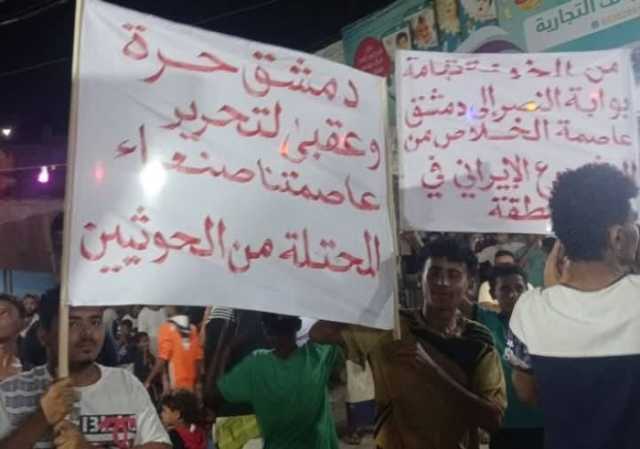 دمشق حرة
وعقبى لتحرير
عاصمتنا صنعاء
المحتلة من الحوثيين
من الخوخة تهامة
بوابة النصر الى دمشق
عاصمة الخلاص من
ع الإيراني في
التجارية